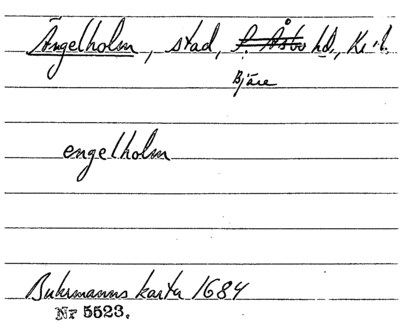 Ängelholm, stad, S. Åsbo hd., Kr. l.
Bjäre
engelholm
Buhrmanns karta 1684
Nr 5523.